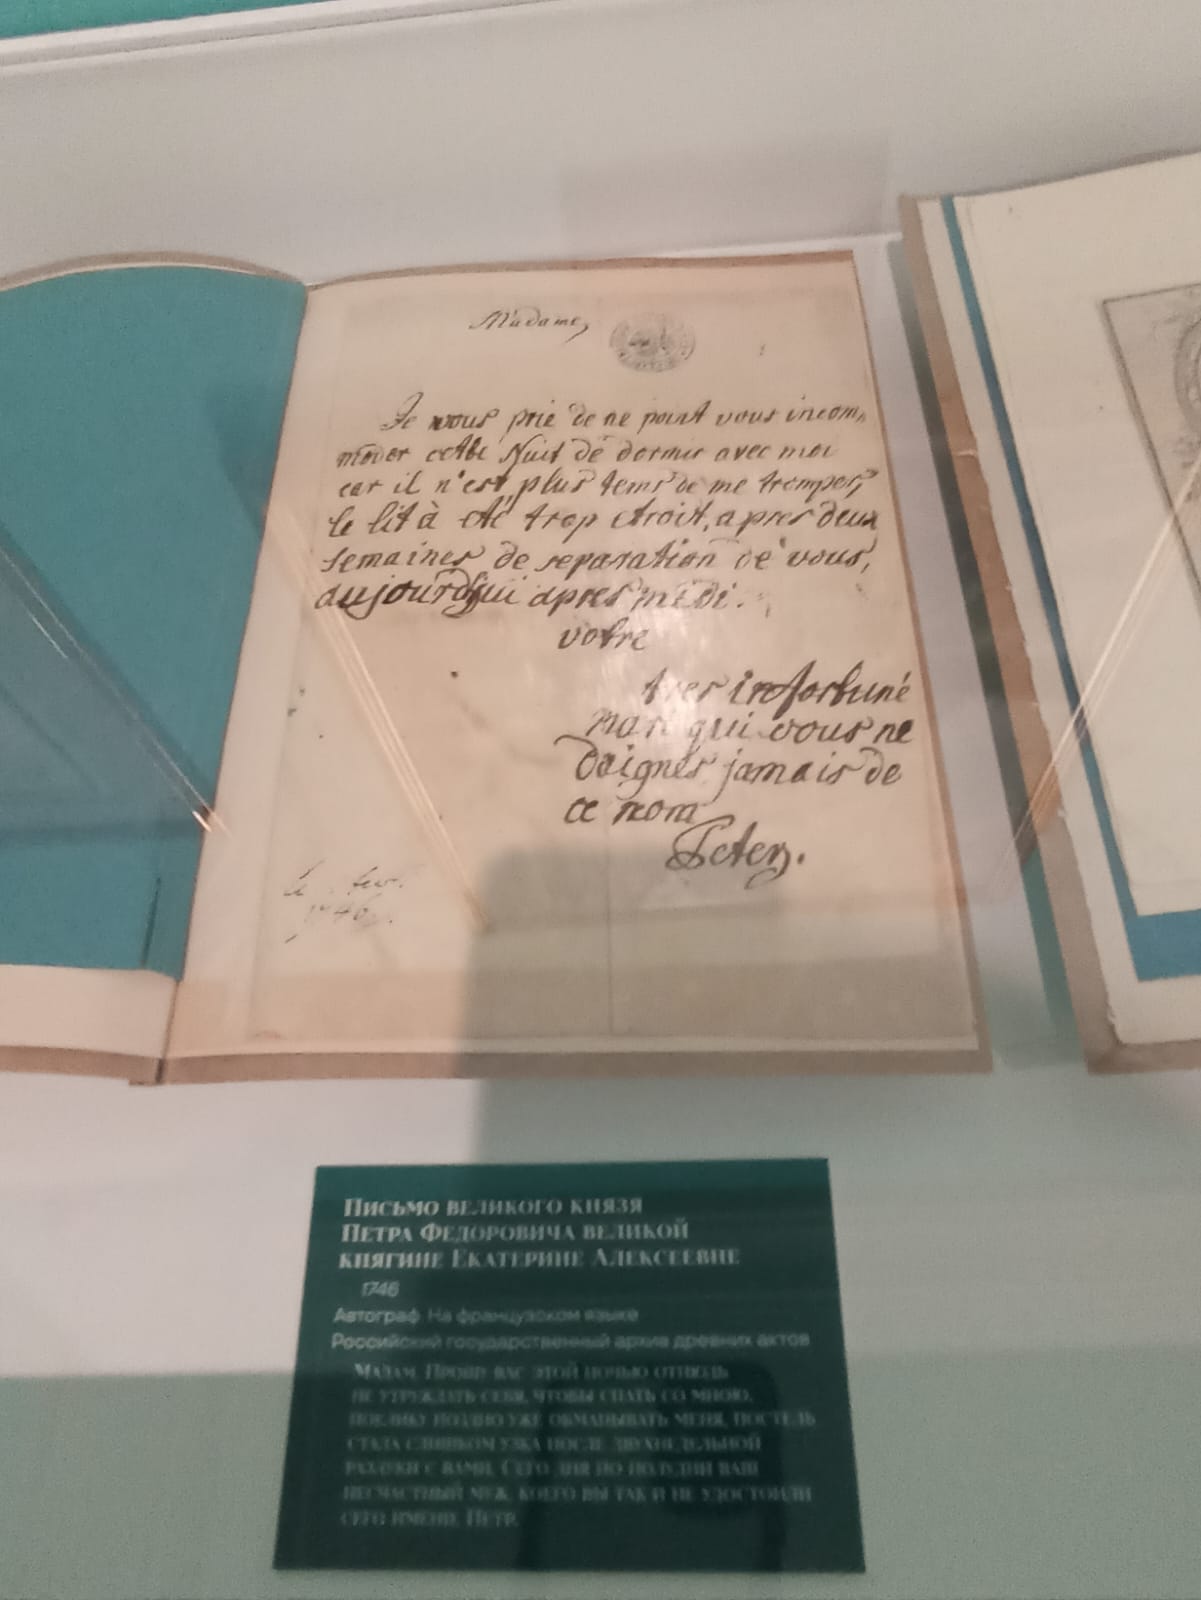 Madame,
Je vous prie de ne point vous incom,
moder cette Nuit de dormir avec moi
car il n'est plus tems de me tromper,
le lit à été trop etroit, apres deux
semaines de separation de vous,
aujourdhui apres midi.
votre
tres infortuné
mari qui vous ne
daignes jamais de
ce nom
Peter.
le
1746.
Письмо великого князя
Петра Федоровича великой
княгине Екатерине Алексеевне
1746
Автограф. На французском языке
Российский государственный архив древних актов
Мадам, Прошу вас этой ночью отнюдь
не утруждать себя, чтобы спать со мною,
поелику поздно уже обманывать меня, постель
стала слишком узка после двухнедельной
разлуки с вами. Сего дня по полудни ваш
несчастный муж, коего вы так и не удостоили
сего имени. Петр.